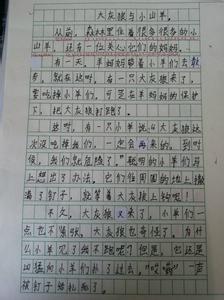 大灰狼与小山羊
从前，森林里住着很多很多的小
山羊，还有一位关心它们的妈妈。
有一天，羊妈妈带着小羊们去
，就在这时，有一只大灰狼来了，
要吃掉小羊们，可是在羊妈妈的保护
下，把大灰狼打跑了。
这时，有一只小羊说：“大灰狼这
次没吃掉我们，一定会再来的，到时
候，我们就危险了。”聪明的小羊们马
上想出了办法，它们在周围的地上撒
满了钉子，就等着大灰狼上钩呢！
不久，大灰狼又来了，小羊们一
点也不紧张。大灰狼也奇怪了，为什
么小羊见了我不跑呢？但是，它还是
凶猛向小羊们扑了过去，“哎哟”一声
被钉子给扎死了。